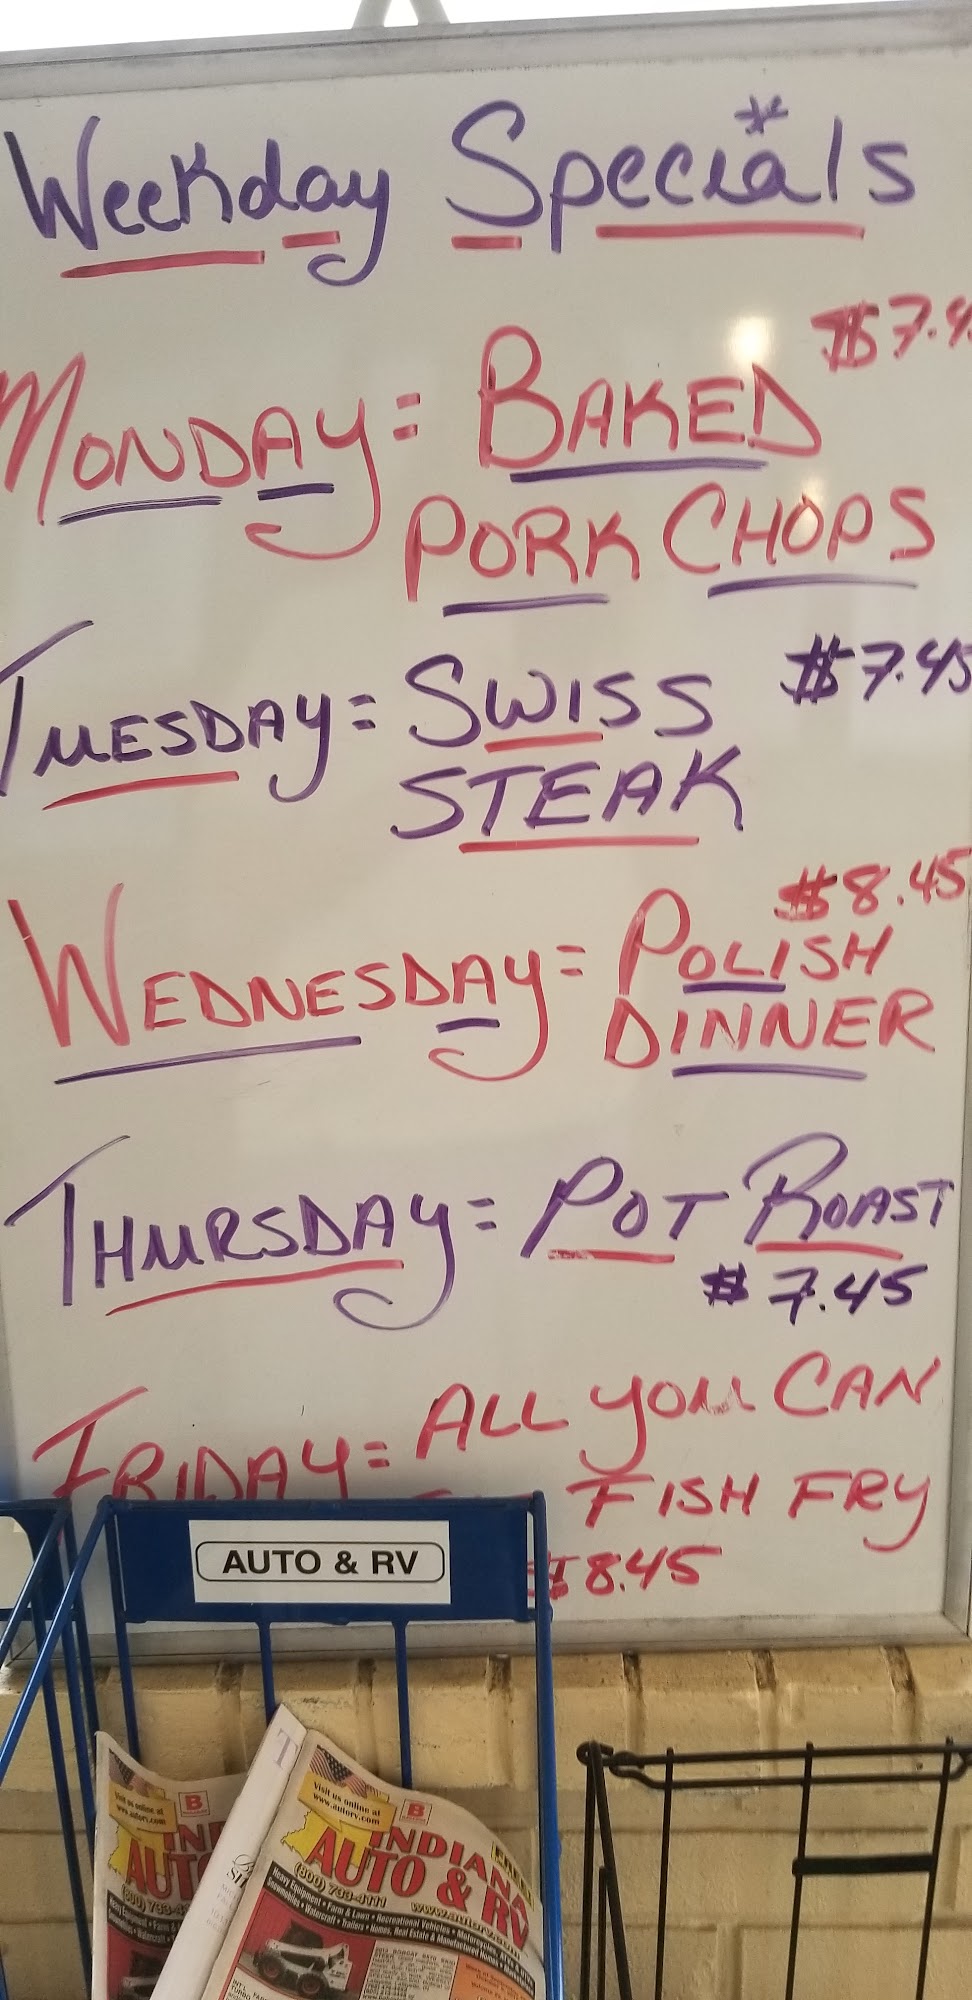 Weekday Specials
$7.4
MONDAY = BAKED
PORK CHOPS
$7.45
TUESDAY = SWISS
STEAK
$8.45
WEDNESDAY = POLISH
DINNER
THURSDAY = POT ROAST
$7.45
FRIDAY = ALL YOU CAN
FISH FRY
$8.45
AUTO & RV
Visit us online at
www.autorv.com
B
INDIANA
AUTO & RV
(800) 733-4111
Heavy Equipment • Farm & Lawn • Recreational Vehicles • Motorcycles, ATVs &
Snowmobiles • Watercraft • Trailers • Homes, Real Estate & Manufactured Homes
Visit us online at
www.autorv.com
B
IND
AUTO